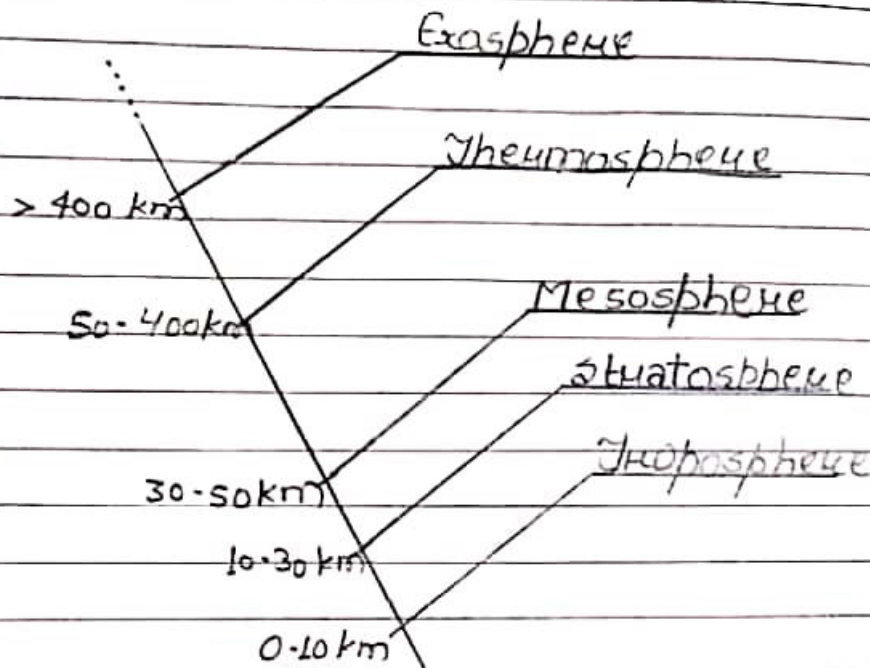 Exosphere
Thermosphere
> 400 km
Mesosphere
50-400km
Stratosphere
Troposphere
30-50km
10-30 km
0-10km